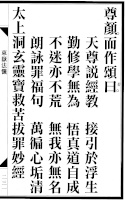 尊顏而作頌曰
天尊說經教　接引於浮生
勤修學無為　悟真道自成
不迷亦不荒　無我亦無名
朗誦罪福句　萬徧心垢清
太上洞玄靈寶救苦拔罪妙經